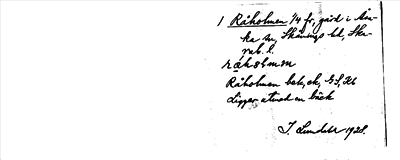 1 Råholmen 1/4 fr, gård i Än-
ka sn, Skånings hd, Ska-
rab. l.
råholmen
Råholmen
Ligger utmed en bäck
J. Lundahl 1928.